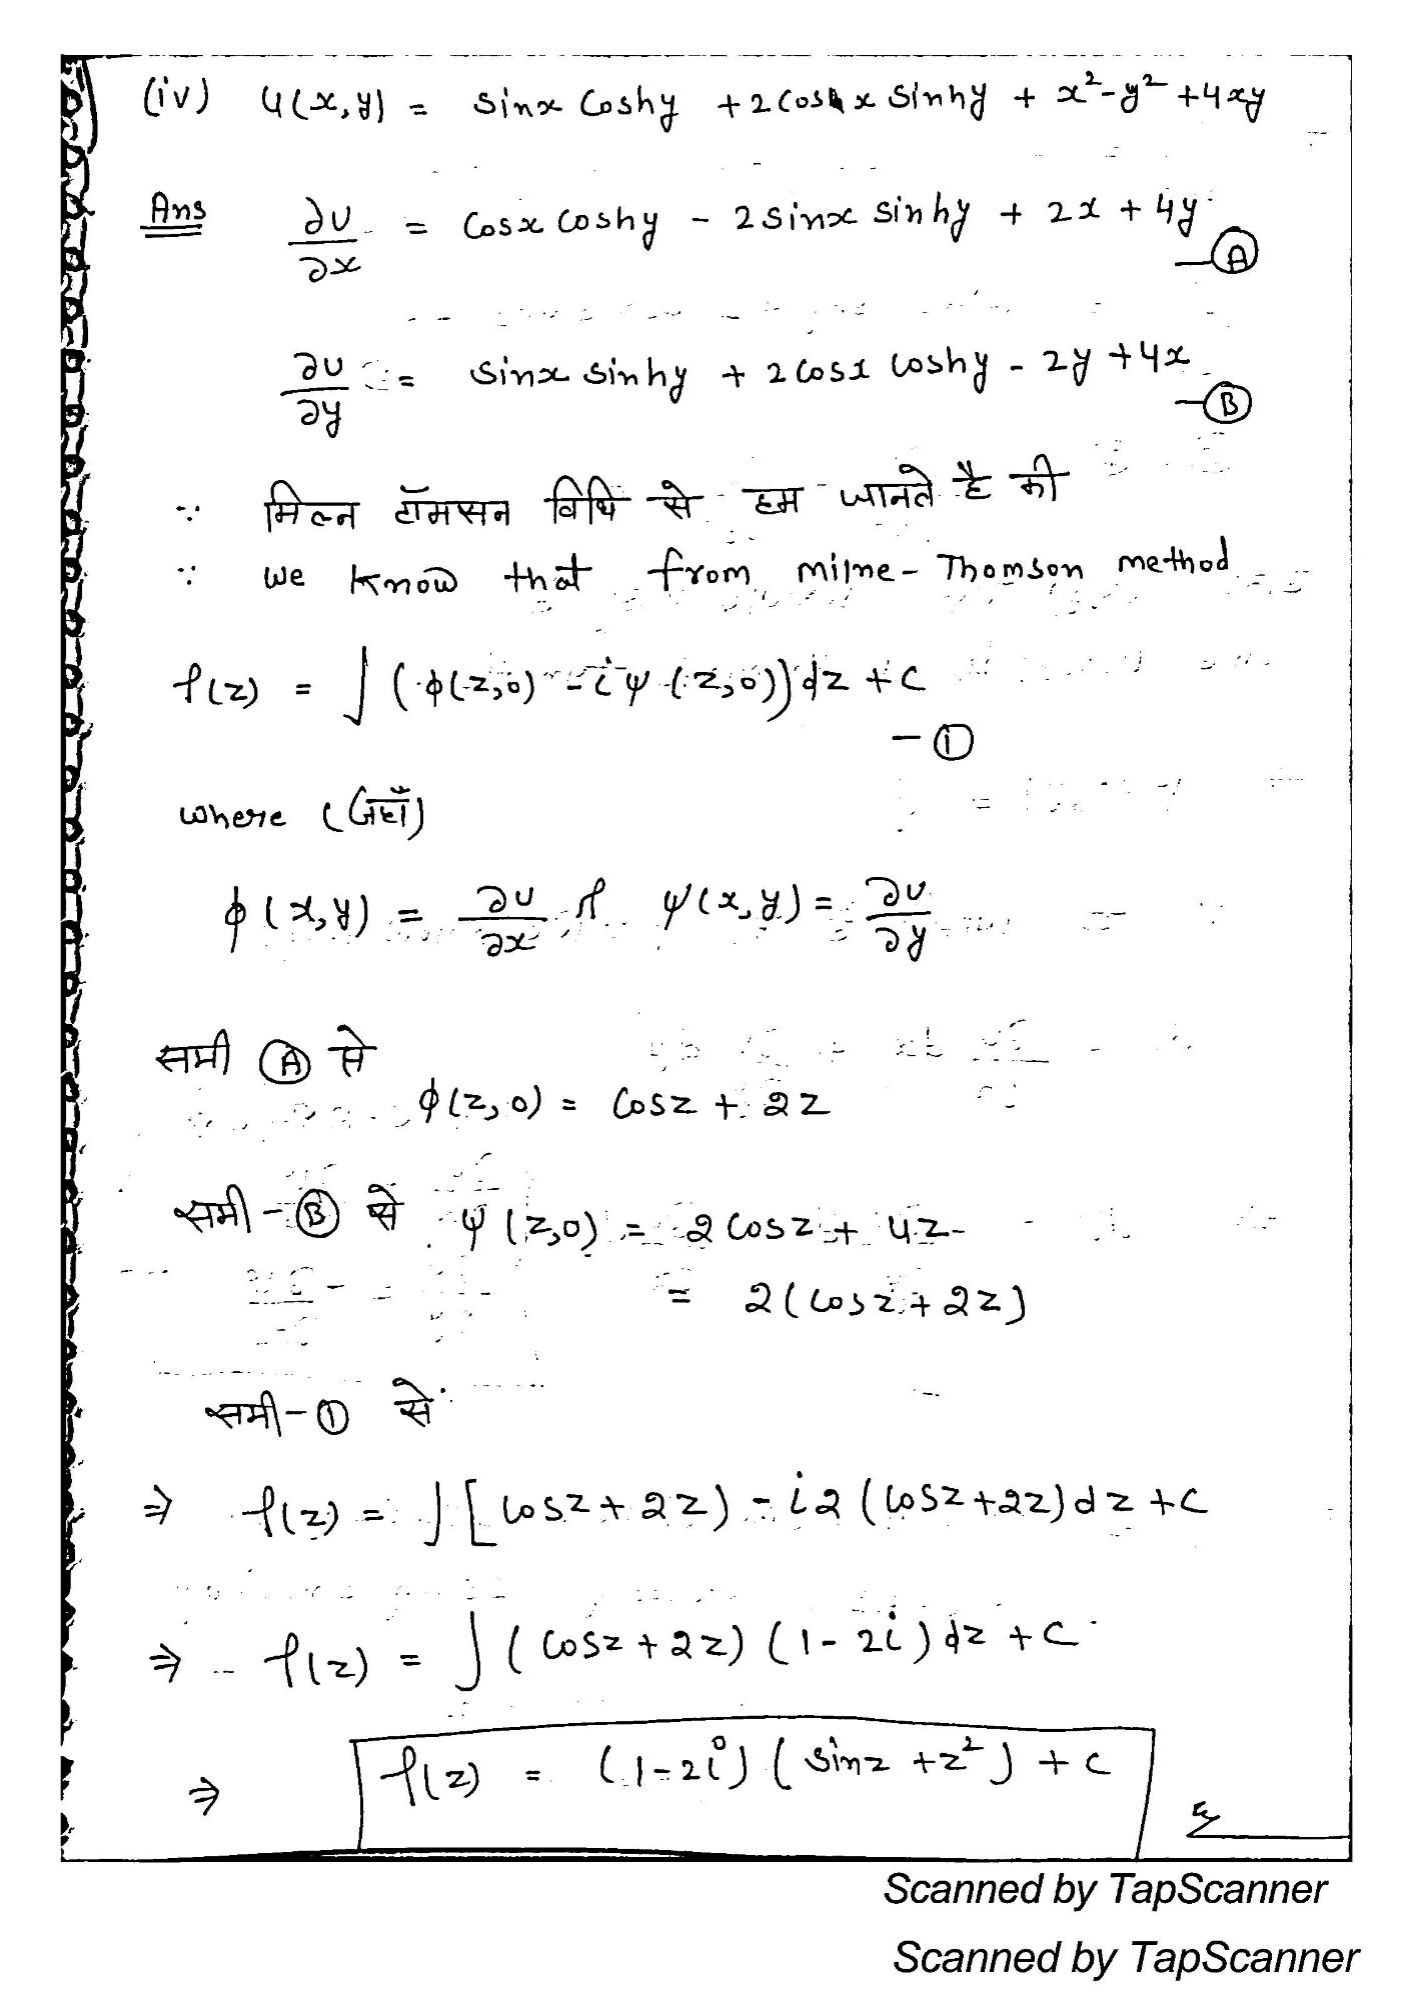 (iv) u(x,y) = sinx Coshy + 2 Cosx Sinhy + x²-y² +4xy
Ans ∂u/∂x = Cosx Coshy - 2 sinx sinhy + 2x + 4y —Ⓐ
∂u/∂y = sinx sinhy + 2 Cosx Coshy - 2y + 4x —Ⓑ
∵ मिल्न टॉमसन विधि से हम जानते है की
∵ We Know that from milne-Thomson method
f(z) = ∫(ϕ(z,0) - iψ(z,0))dz + c —①
where (जहाँ)
ϕ(x,y) = ∂u/∂x & ψ(x,y) = ∂u/∂y
समी Ⓐ से
ϕ(z,0) = Cosz + 2z
समी-Ⓑ से ψ(z,0) = 2 Cosz + 4z
= 2(Cosz + 2z)
समी-① से
⇒ f(z) = ∫[Cosz + 2z) - i2(Cosz+2z)dz + c
⇒ f(z) = ∫(Cosz + 2z)(1-2i)dz + c
⇒ f(z) = (1-2i)(sinz + z²) + c
Scanned by TapScanner
Scanned by TapScanner